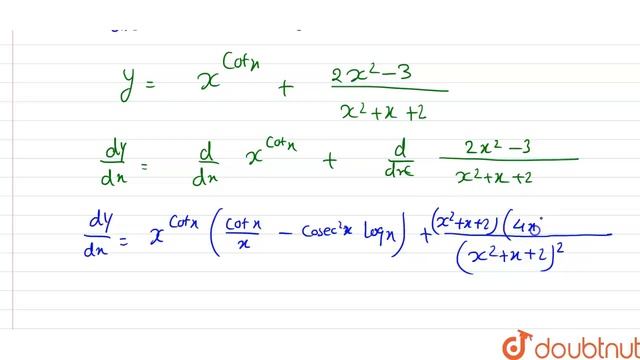 y = x^{Cotx} + \frac{2x^2-3}{x^2+x+2}
\frac{dy}{dx} = \frac{d}{dx} x^{Cotx} + \frac{d}{dx} \frac{2x^2-3}{x^2+x+2}
\frac{dy}{dx} = x^{Cotx} (\frac{Cotx}{x} - Cosec^2x logx) + \frac{(x^2+x+2)(4x)}{(x^2+x+2)^2}
doubtnut